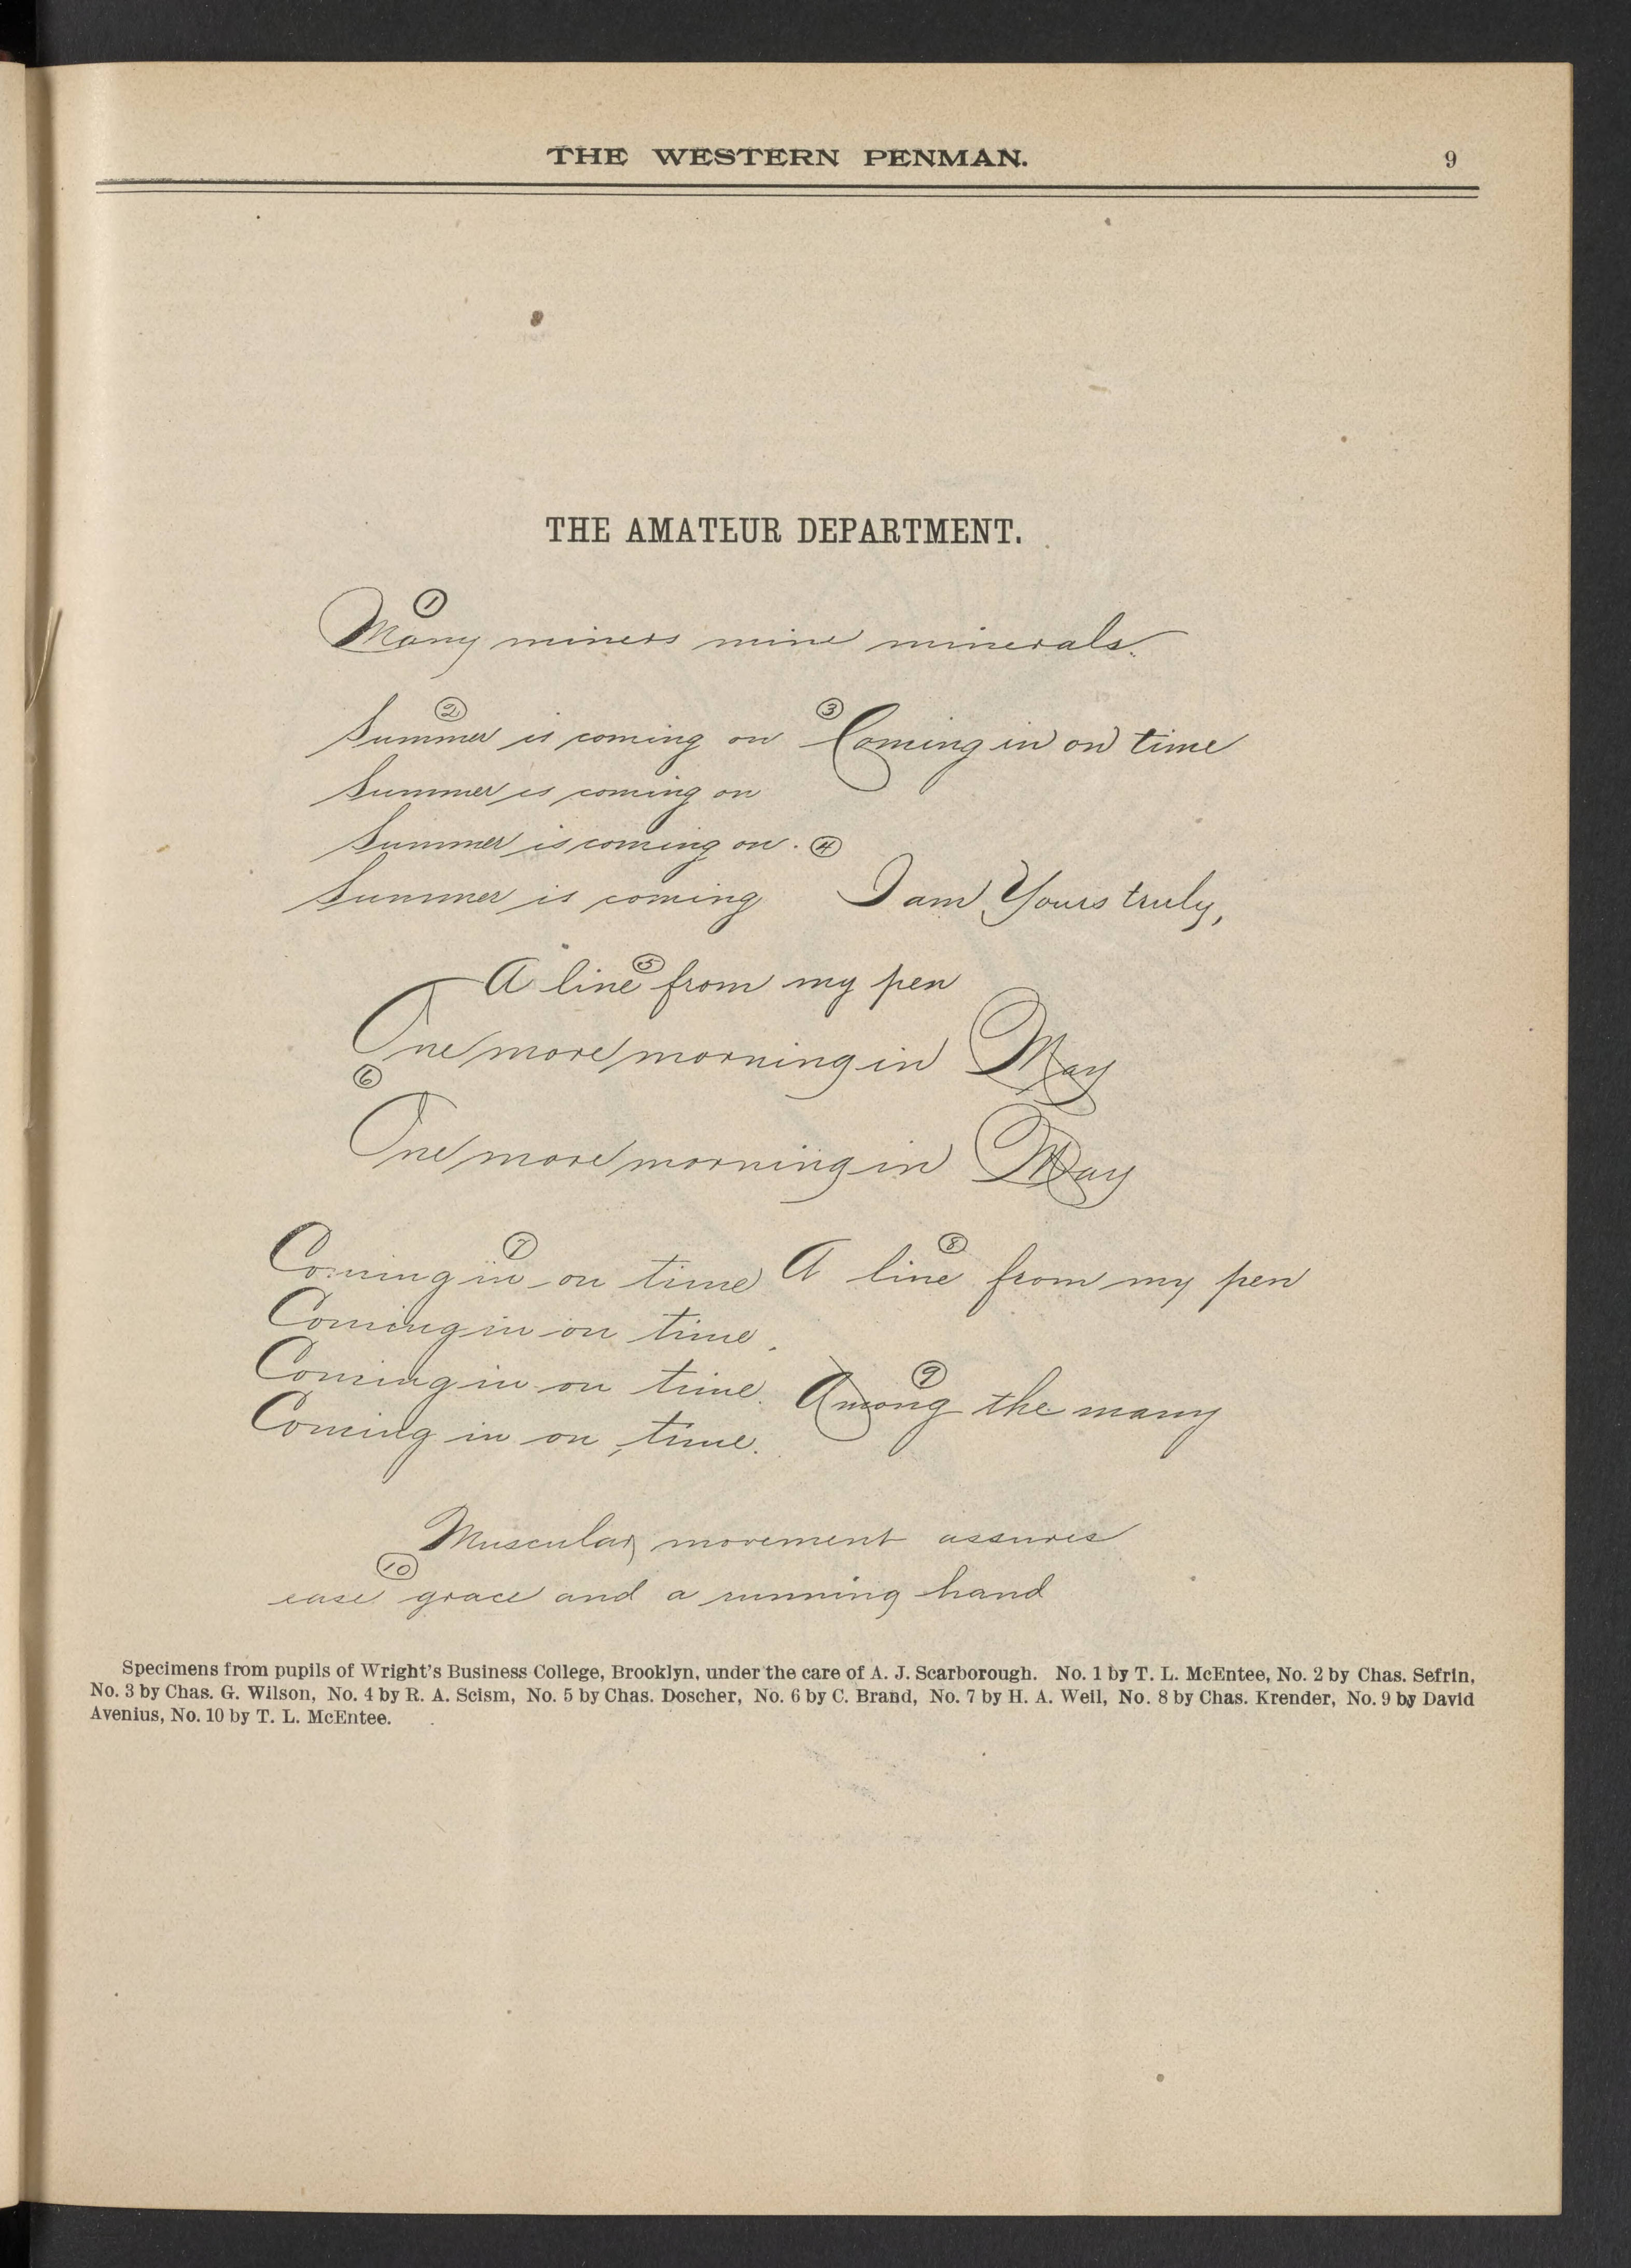 THE WESTERN PENMAN. 9
THE AMATEUR DEPARTMENT.
1
Many miners mine minerals.
2
Summer is coming on
3
Coming in on time
Summer is coming on
Summer is coming on.
4
Summer is coming
I am Yours truly,
5
A line from my pen
One more morning in May
6
One more morning in May
7
Coming in on time
8
A line from my pen
Coming in on time.
Coming in on time.
9
Among the many
Coming in on time.
Muscular movement assures
10
ease grace and a running hand
Specimens from pupils of Wright's Business College, Brooklyn, under the care of A. J. Scarborough. No. 1 by T. L. McEntee, No. 2 by Chas. Sefrin,
No. 3 by Chas. G. Wilson, No. 4 by R. A. Scism, No. 5 by Chas. Doscher, No. 6 by C. Brand, No. 7 by H. A. Weil, No. 8 by Chas. Krender, No. 9 by David
Avenius, No. 10 by T. L. McEntee.